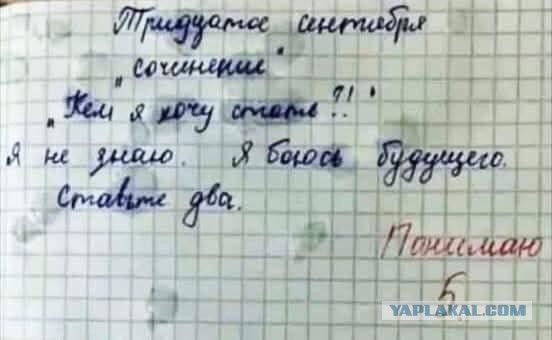 Тридцатое сентября
„сочинение"
„Кем я хочу стать?!"
Я не знаю. Я боюсь будущего.
Ставьте два.
Понимаю
5
YAPLAKAL.COM